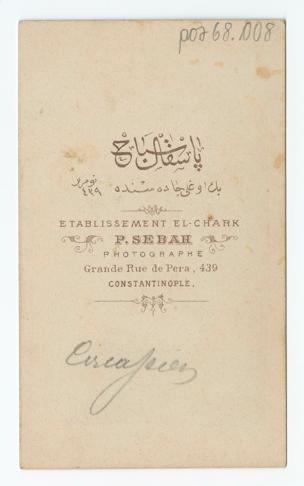 poz68.008
پاسقال صباح
بك اوغلی جاده سنده نومرو ٤٣٩
ETABLISSEMENT EL-CHARK
P. SEBAH
PHOTOGRAPHE
Grande Rue de Pera, 439
CONSTANTINOPLE.
Circassien